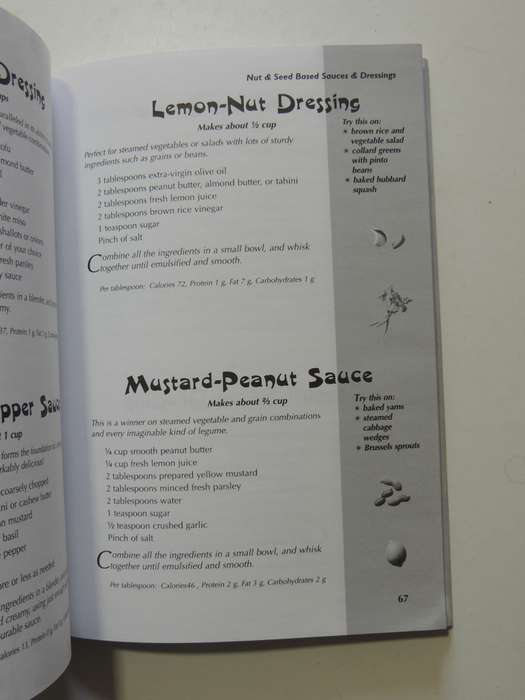 Dressing
cups
vegetable combinations
tofu
almond butter
vinegar
white miso
shallots or onions
of your choice
fresh parsley
soy sauce
ingredients in a blender, and
Nut & Seed Based Sauces & Dressings
Lemon-Nut Dressing
Makes about ½ cup
Perfect for steamed vegetables or salads with lots of sturdy
ingredients such as grains or beans.
3 tablespoons extra-virgin olive oil
2 tablespoons peanut butter, almond butter, or tahini
2 tablespoons fresh lemon juice
2 tablespoons brown rice vinegar
1 teaspoon sugar
Pinch of salt
Combine all the ingredients in a small bowl, and whisk
together until emulsified and smooth.
Per tablespoon: Calories 72, Protein 1 g, Fat 7 g, Carbohydrates 1 g
Try this on:
* brown rice and
vegetable salad
* collard greens
with pinto
beans
* baked hubbard
squash
pper Sauce
1 cup
forms the foundation
coarsely chopped
or cashew butter
mustard
basil
pepper
or less as needed.
ingredients in a blender,
creamy, using just
Mustard-Peanut Sauce
Makes about ⅔ cup
This is a winner on steamed vegetable and grain combinations
and every imaginable kind of legume.
¼ cup smooth peanut butter
¼ cup fresh lemon juice
2 tablespoons prepared yellow mustard
2 tablespoons minced fresh parsley
2 tablespoons water
1 teaspoon sugar
½ teaspoon crushed garlic
Pinch of salt
Combine all the ingredients in a small bowl, and whisk
together until emulsified and smooth.
Per tablespoon: Calories46 , Protein 2 g, Fat 3 g, Carbohydrates 2 g
Try this on:
* baked yams
* steamed
cabbage
wedges
* Brussels sprouts
67